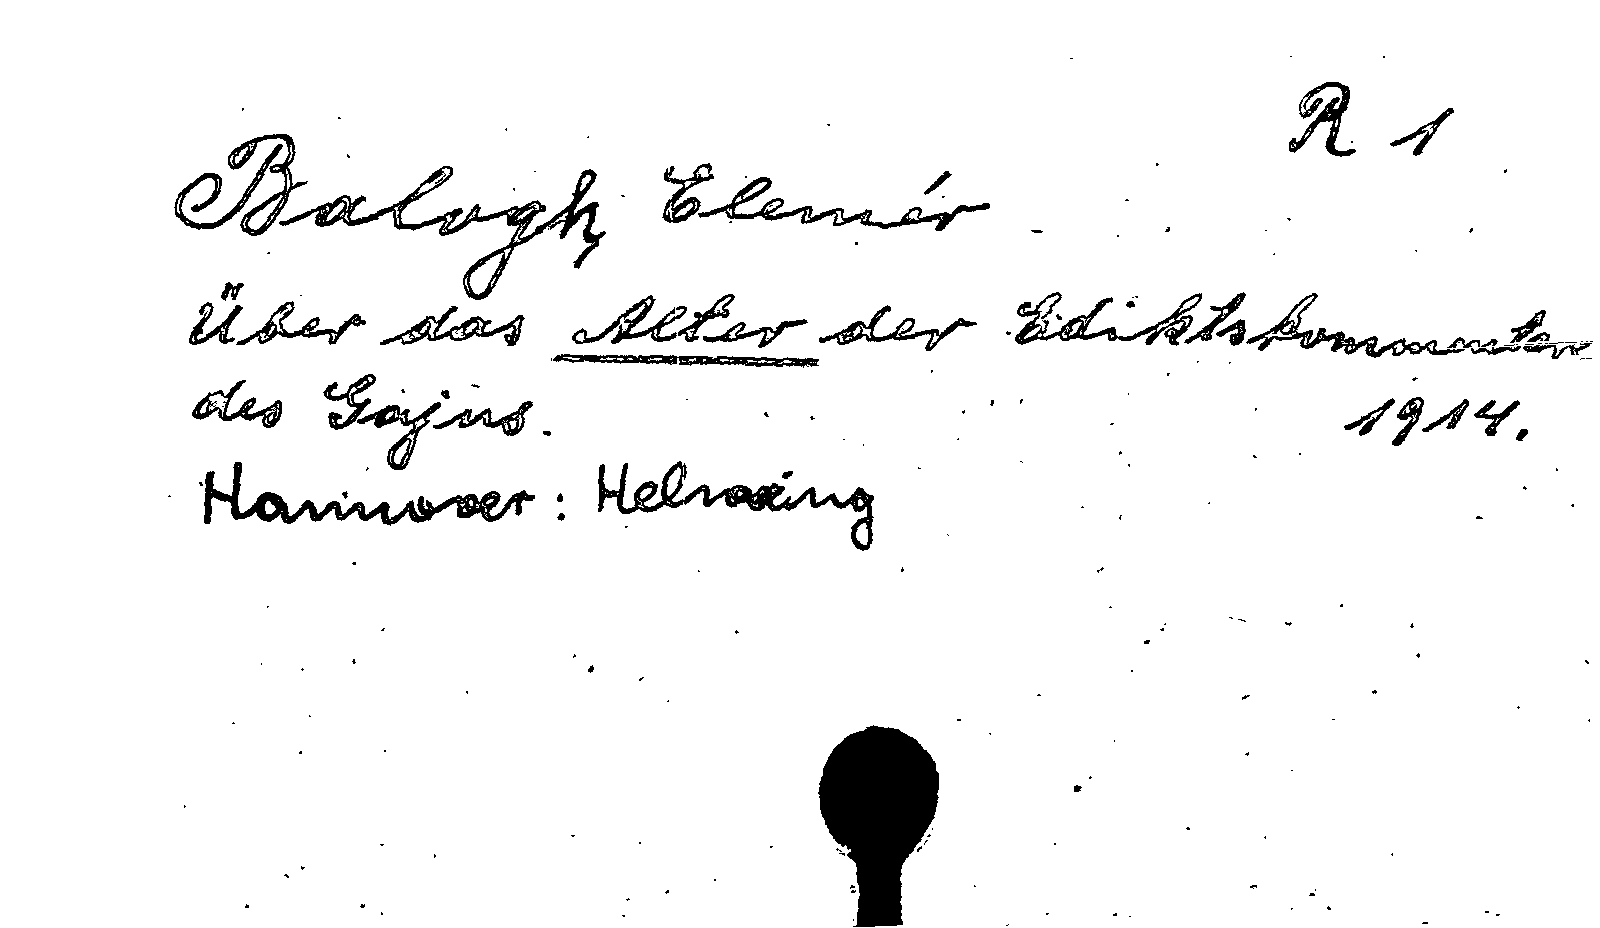 R 1
Balogh, Elemér
Über das Alter der Ediktskommentare
des Gajus. 1914.
Hannover: Helwing